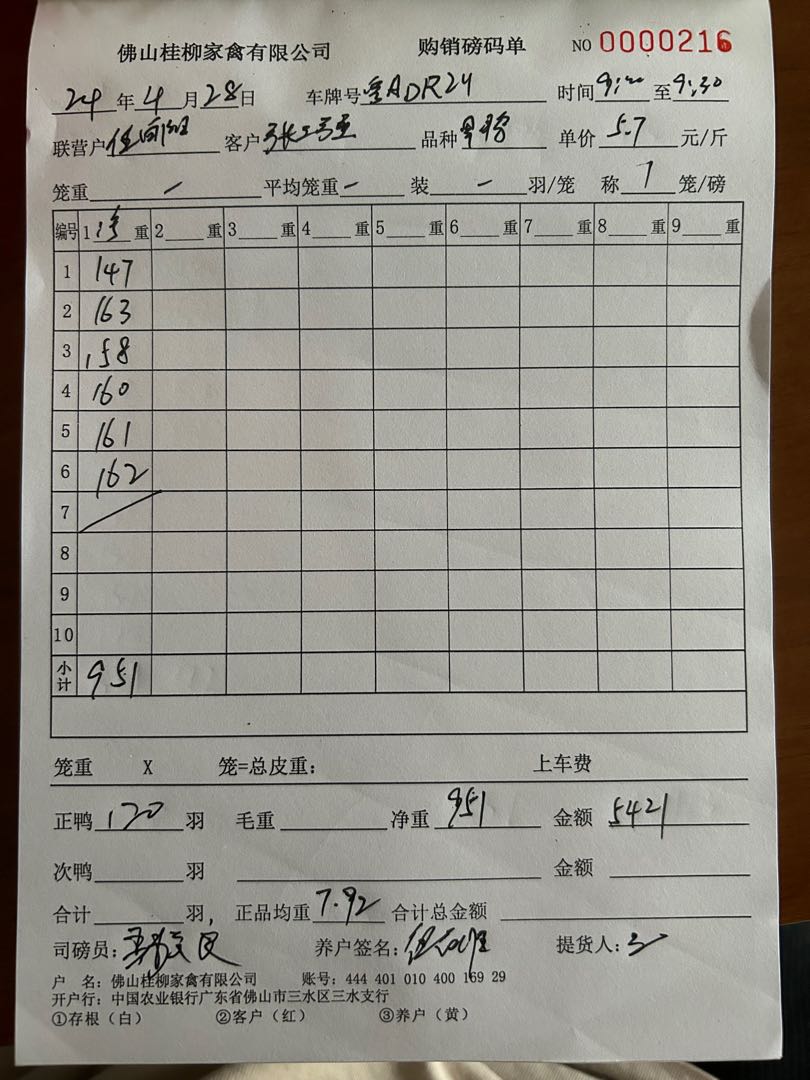 佛山桂柳家禽有限公司 购销磅码单 NO 0000216
24 年 4 月 28 日 车牌号 ADR24 时间 9:00 至 9:30
联营户 客户 品种 单价 5.7 元/斤
笼重 — 平均笼重 — 装 — 羽/笼 称 1 笼/磅
编号 1 净 重 2 重 3 重 4 重 5 重 6 重 7 重 8 重 9 重
1 147
2 163
3 158
4 160
5 161
6 162
7
8
9
10
小计 951
笼重 X 笼=总皮重: 上车费
正鸭 120 羽 毛重 净重 951 金额 5421
次鸭 羽 金额
合计 羽, 正品均重 7.92 合计总金额
司磅员: 养户签名: 提货人:
户 名: 佛山桂柳家禽有限公司 账号: 444 401 010 400 169 29
开户行: 中国农业银行广东省佛山市三水区三水支行
①存根(白) ②客户(红) ③养户(黄)